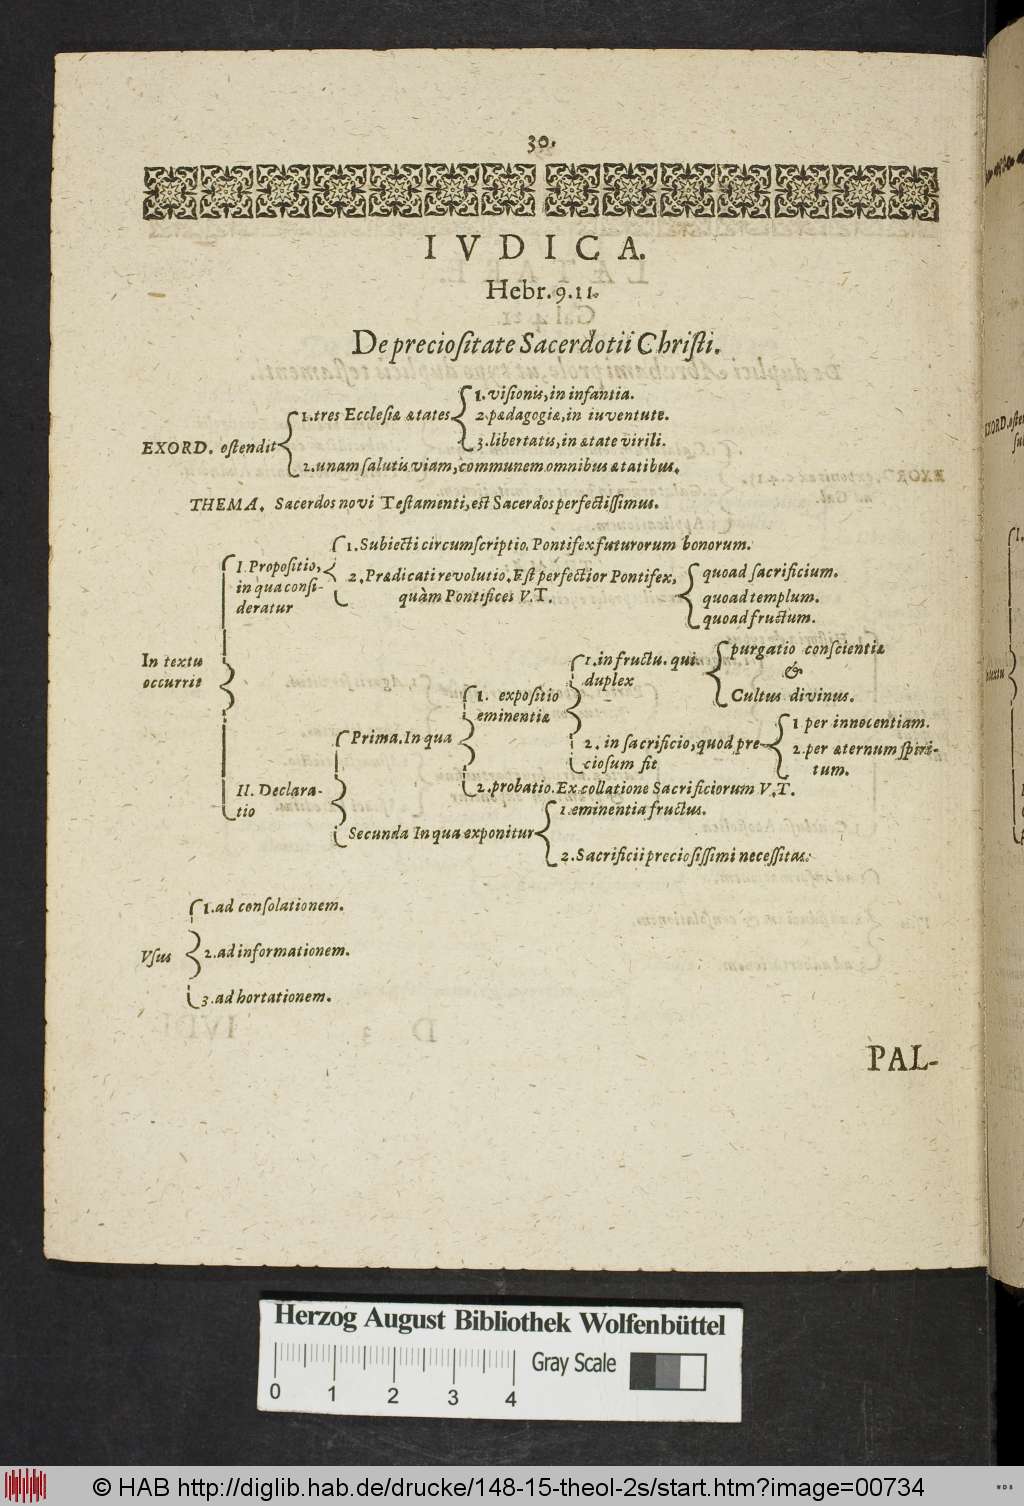 30.
IVDICA.
Hebr. 9. 11.
De preciositate Sacerdotii Christi.
EXORD. ostendit
1. tres Ecclesiæ ætates
1. visionis, in infantia.
2. pædagogiæ, in iuventute.
3. libertatis, in ætate virili.
2. unam salutis viam, communem omnibus ætatibus.
THEMA. Sacerdos novi Testamenti, est Sacerdos perfectissimus.
In textu
occurrit
I. Propositio,
in qua consi-
deratur
1. Subiecti circumscriptio. Pontifex futurorum bonorum.
2. Prædicati revolutio. Est perfectior Pontifex,
quàm Pontifices V.T.
quoad sacrificium.
quoad templum.
quoad fructum.
II. Declara-
tio
Prima. In qua
1. expositio
eminentiæ
1. in fructu. qui
duplex
purgatio conscientiæ
&
Cultus divinus.
2. in sacrificio, quod pre-
ciosum sit
1 per innocentiam.
2. per æternum spiri-
tum.
2. probatio. Ex collatione Sacrificiorum V. T.
Secunda In qua exponitur
1. eminentia fructus.
2. Sacrificii preciosissimi necessitas.
Vsus
1. ad consolationem.
2. ad informationem.
3. ad hortationem.
PAL-
Herzog August Bibliothek Wolfenbüttel
Gray Scale
0 1 2 3 4
© HAB http://diglib.hab.de/drucke/148-15-theol-2s/start.htm?image=00734